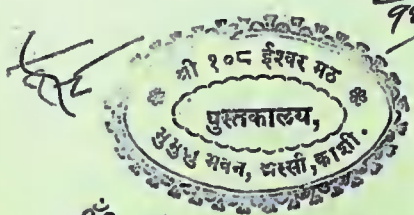 श्री १०८ ईश्वर मठ
पुस्तकालय,
मुमुक्षु भवन, अस्सी, काशी.
ॐ